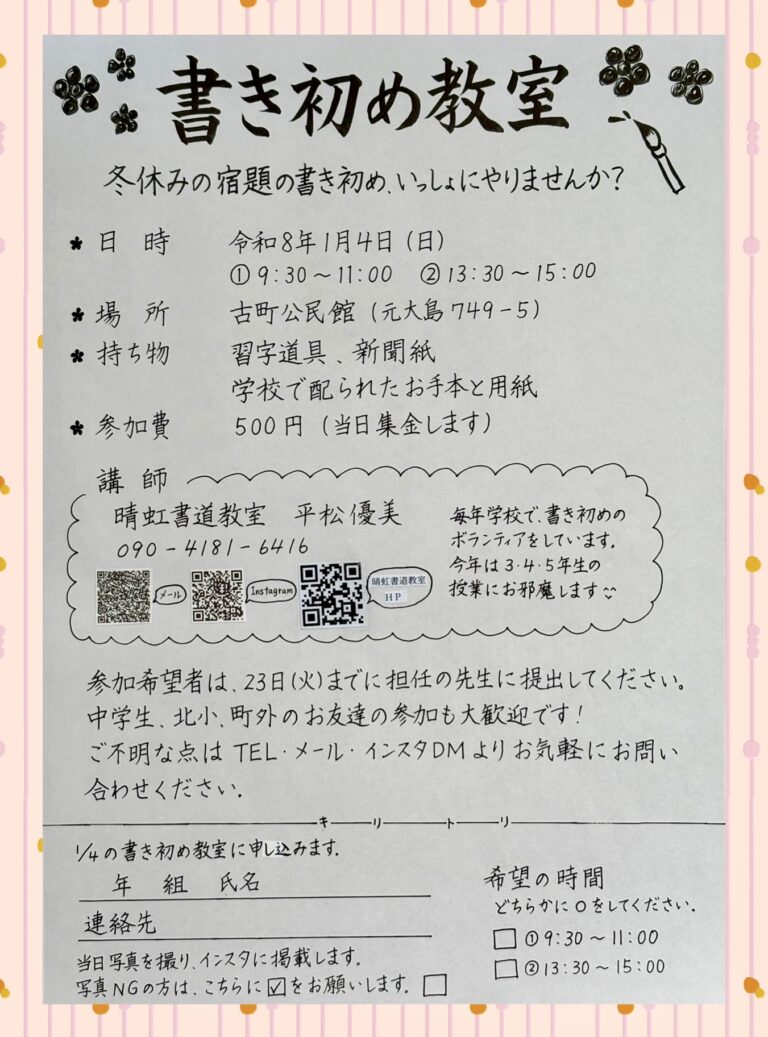 書き初め教室
冬休みの宿題の書き初め、いっしょにやりませんか？
日時 令和8年1月4日(日)
①9:30～11:00 ②13:30～15:00
場所 古町公民館(元大島749-5)
持ち物 習字道具、新聞紙
学校で配られたお手本と用紙
参加費 500円(当日集金します)
講師
晴虹書道教室 平松優美
090-4181-6416
メール
Instagram
晴虹書道教室
HP
毎年学校で、書き初めの
ボランティアをしています。
今年は3・4・5年生の
授業にお邪魔します
参加希望者は、23日(火)までに担任の先生に提出してください。
中学生、北小、町外のお友達の参加も大歓迎です！
ご不明な点はTEL・メール・インスタDMよりお気軽にお問い
合わせください。
キリトリ
1/4の書き初め教室に申し込みます。
年 組 氏名
連絡先
当日写真を撮り、インスタに掲載します。
写真NGの方は、こちらに☑をお願いします。□
希望の時間
どちらかに○をしてください。
□①9:30～11:00
□②13:30～15:00